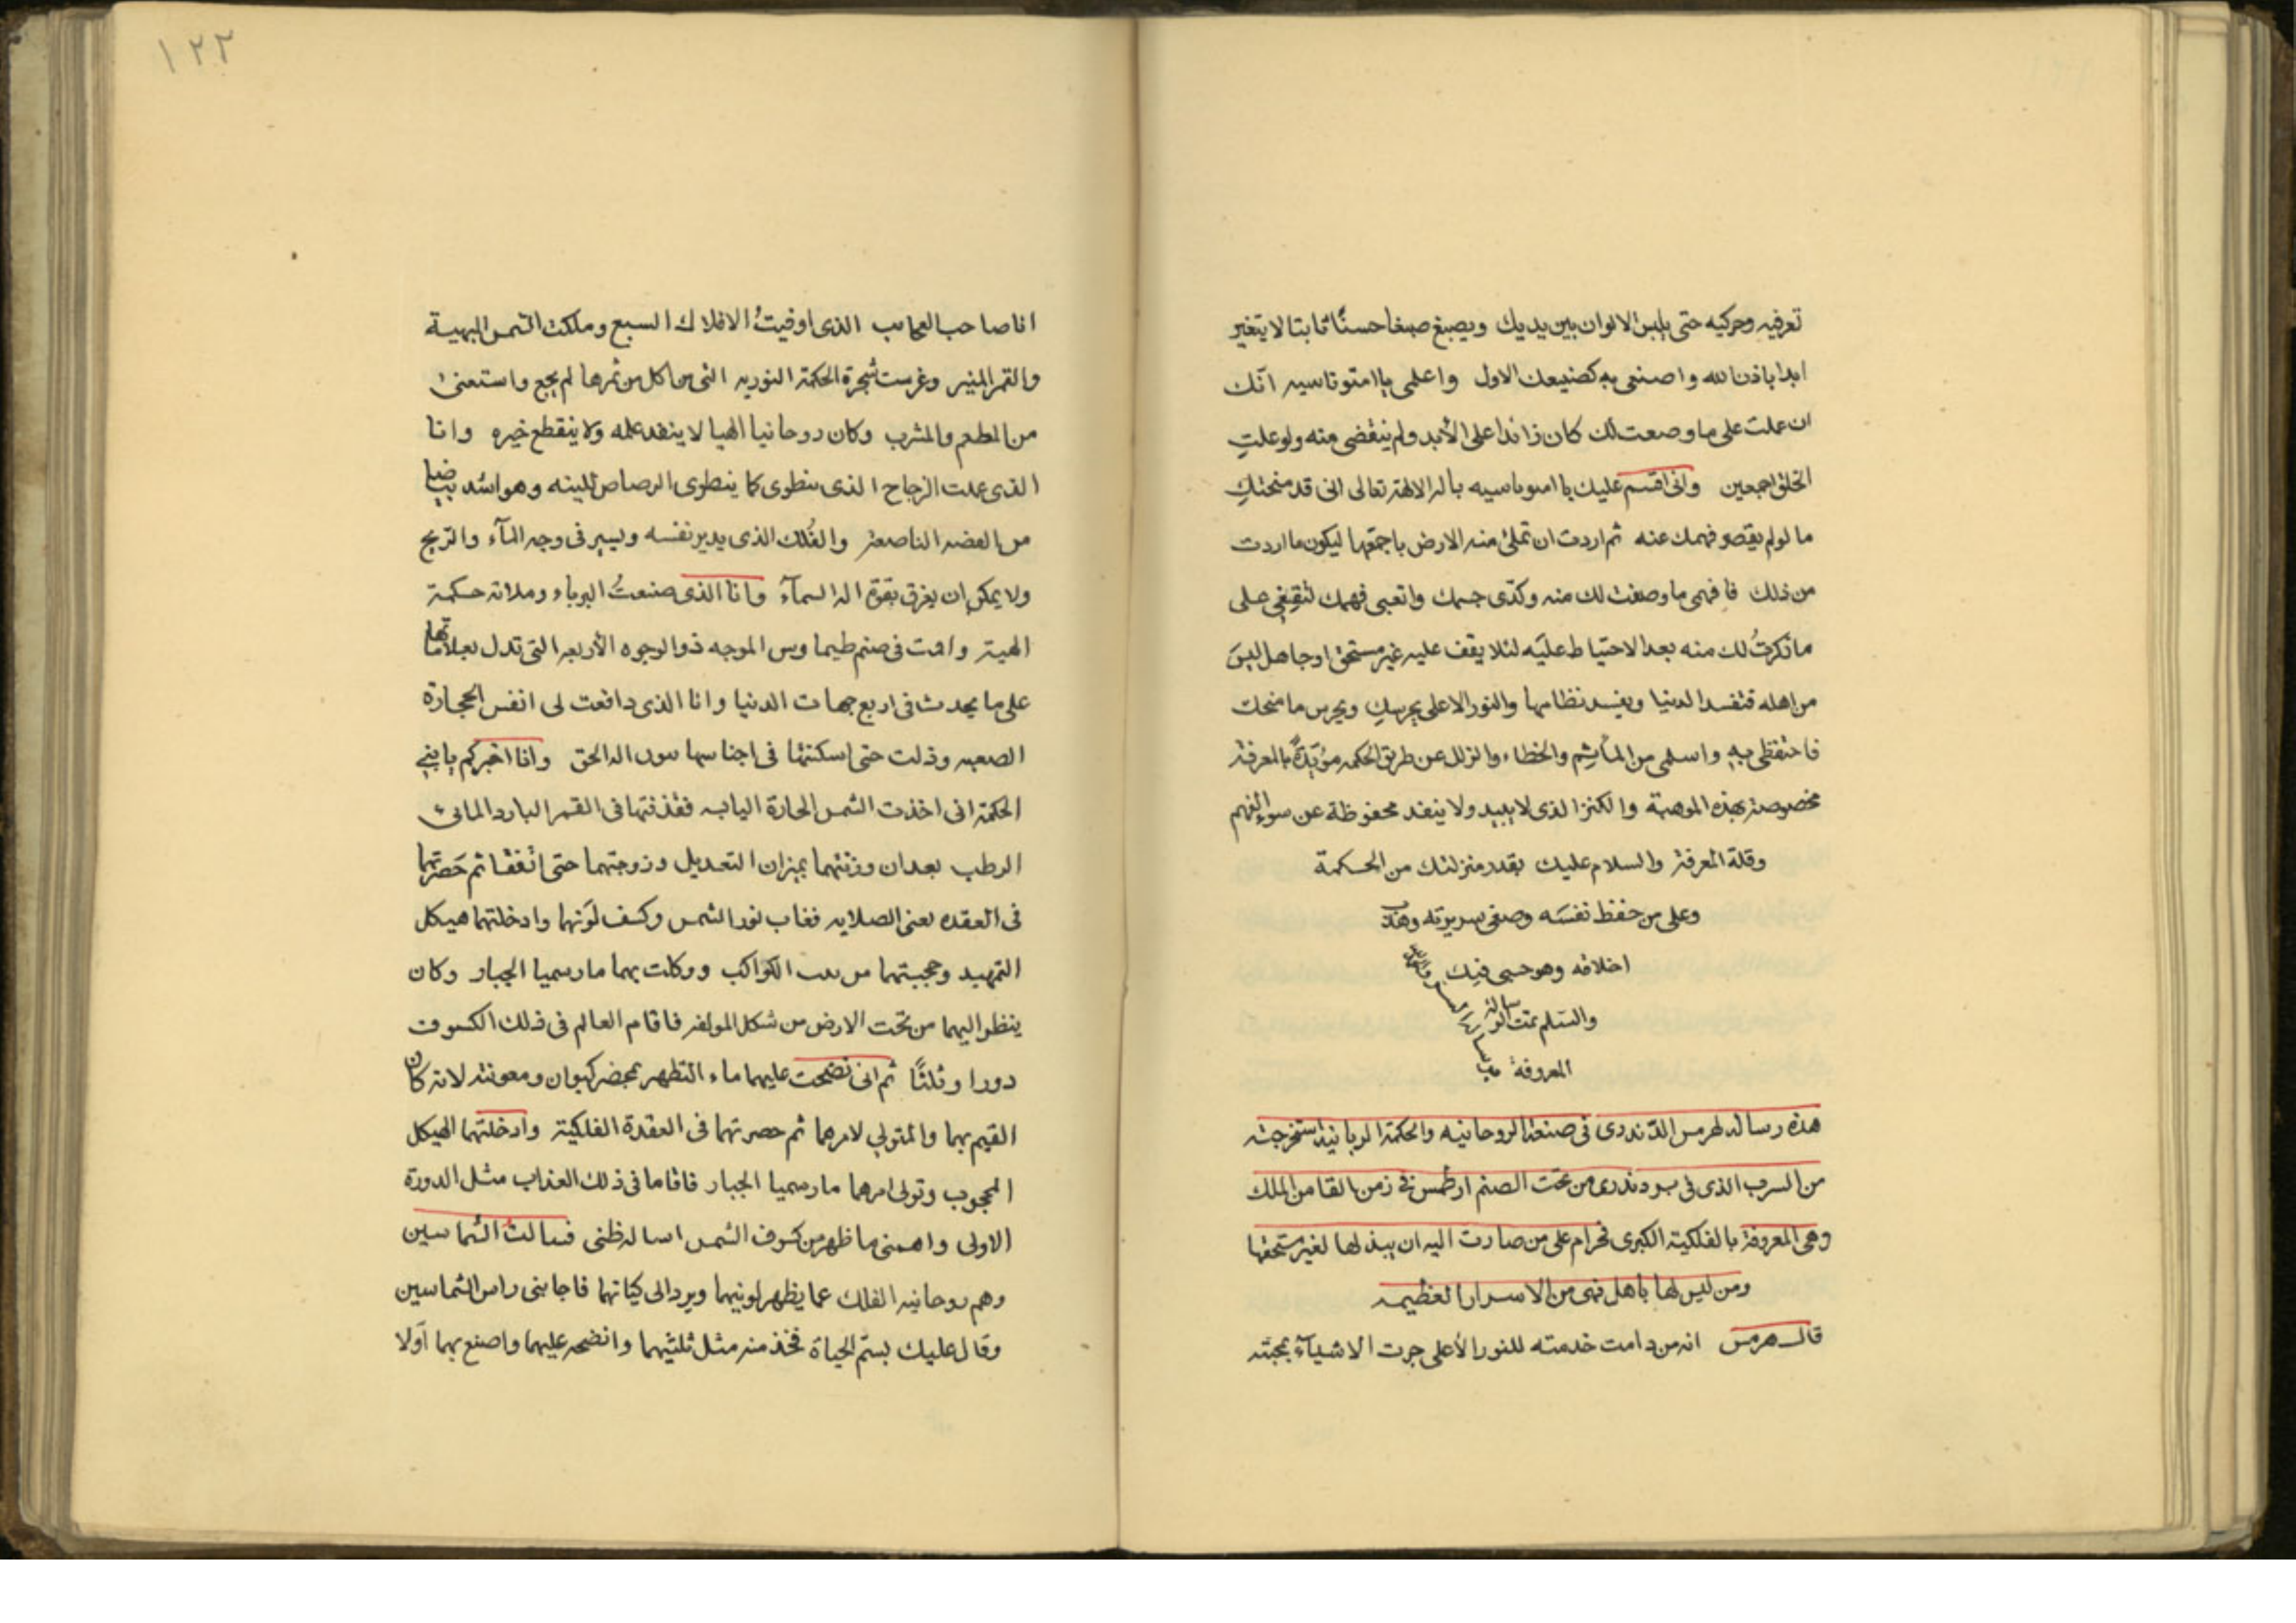 تعرفيه وحركيه حتى يلبس الالوان بين يديك ويصبغ صبغا حسنًا ثابتا لا يتغير
ابدا باذن الله واصنعى به كصنيعك الاول واعلمى يا امتوثاسيه انّك
ان عملت على ما وصعت لك كان زائدا على الأبد ولم ينقضى منه ولو علمتِ
الخلق اجمعين وانى اقسم عليك يا امىوىاسيه باله الالهة تعالى انى قد منحتكِ
ما لو لم يقصر فهمك عنه ثم اردت ان تملئ منه الارض باجمعها ليكون ما اردت
من ذلك فافهمى ما وصفت لك منه وكدّى جسمك واتعبى فهمك لتقِفِى على
ما ذكرتُ لك منه بعد الاحتياط عليَه لئلا يقف عليه غير مستحق او جاهل ليسَ
من اهله فتفسد الدنيا ويفسد نظامها والنور الاعلى يحرسكِ ويحرس ما منحك
فاحتفظى بهِ واسلمى من المآثِم والخطاء والزلل عن طريق الحكمه مؤيّدةً بالمعرفة
مخصوصة بهذه الموهبة والكنز الذى لا يبيد ولا ينفد محفوظة عن سوء الفهم
وقلة المعرفة والسلام عليك بقدر منزلتك من الحكمة
وعلى من حفظ نفسَه وصفى سريرته وهذّب
اخلاقه وهو حسبى فيك
والسّلم تمت الرسالة
المعروفة
هذه رسالة لهرمس الدّندرى فى صنعة الروحانيه والحكمة الربانية استخرجت
من السرب الذى فى بىت دندرى من تحت الصنم ارطمس فى زمن القامن الملك
وهى المعروفة بالفلكية الكبرى فحرام على من صارت اليه ان يبذلها لغير مستحقها
ومن ليس لها باهل فهى من الاسرار العظيمه
قال هرمس انه من دامت خدمته للنور الأعلى جرت الاشيآء بمحبته
١٢٢
انا صاحب العجايب الذى اوفيتُ الافلاك السبع وملكت الشمس البهية
والقمر المنير وغرست شجرة الحكمة النوريه التى من اكل من ثمرها لم يجع واستغنىٰ
من المطعم والمشرب وكان روحانيا الهيا لا ينفد علمه ولا ينقطع خيره وانا
الذى عملت الزجاج الذى ينطوى كما ينطوى الرصاص للينه وهو اشد بياضا
من الفضه الناصعة والفُلك الذى يدير نفسه ويسير فى وجه المآء والرّيح
ولا يمكن ان يغرق بقوة اله السمآء وانا الذى صنعتُ البرباء وملاته حكمة
الهية واقمت فى صنم طيماويس الموجه ذو الوجوه الأربعه التى تدل بعلاماتها
على ما يحدث فى اربع جهات الدنيا وانا الذى دافعت لى انفس الحجارة
الصعبه وذلت حتى اسكنتها فى اجناسها بعون اله الحق وانا اخبركم يا بنى
الحكمة انى اخذت الشمس الحارة اليابسه فقذفتها فى القمر البارد المائى
الرطب بعد ان وزنتهما بميزان التعديل وزوجتهما حتى اتفقا ثم حَصرتهما
فى العقده يعنى الصلايه فغاب نور الشمس وكسف لوَنها وادخلتهما هيكل
التمهيد وحجبتهما من الكواكب ووكلت بهما مارسميا الجبار وكان
ينظر اليهما من تحت الارض من شكل المولفه فاقام العالم فى ذلك الكسوف
دورا وثلثًا ثم انى نضحت عليهما ماء التطهر بمحضر كيوان ومعونته لانه كان
القيم بهما والمتولي لامرهما ثم حصرتهما فى العقدة الفلكية وادخلتهما الهيكل
المحجوب وتولى امرهما مارسميا الجبار فاقاما فى ذلك العذاب مثل الدورة
الاولى واهمنى ما ظهر من كسوف الشمس اساله ظنى فسالت الشماسين
وهم روحانيه الفلك عما يظهر لونيهما ويرد الى كيانهما فاجابنى راس الشماسين
وقال عليك بسمّ الحياة فخذ منه مثل ثلثيهما وانضحه عليهما واصنع بهما اوّلا